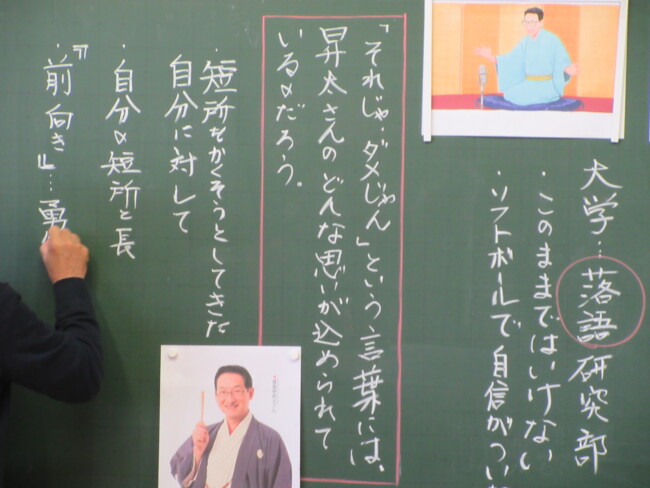 大学…落語研究部
・このままではいけない
・ソフトボールで自信がつい
「それじゃ、ダメじゃん」という言葉には、
昇太さんのどんな思いが込められて
いるのだろう。
・短所をかくそうとしてきた
自分に対して
・自分の短所と長
・『前向き』…勇